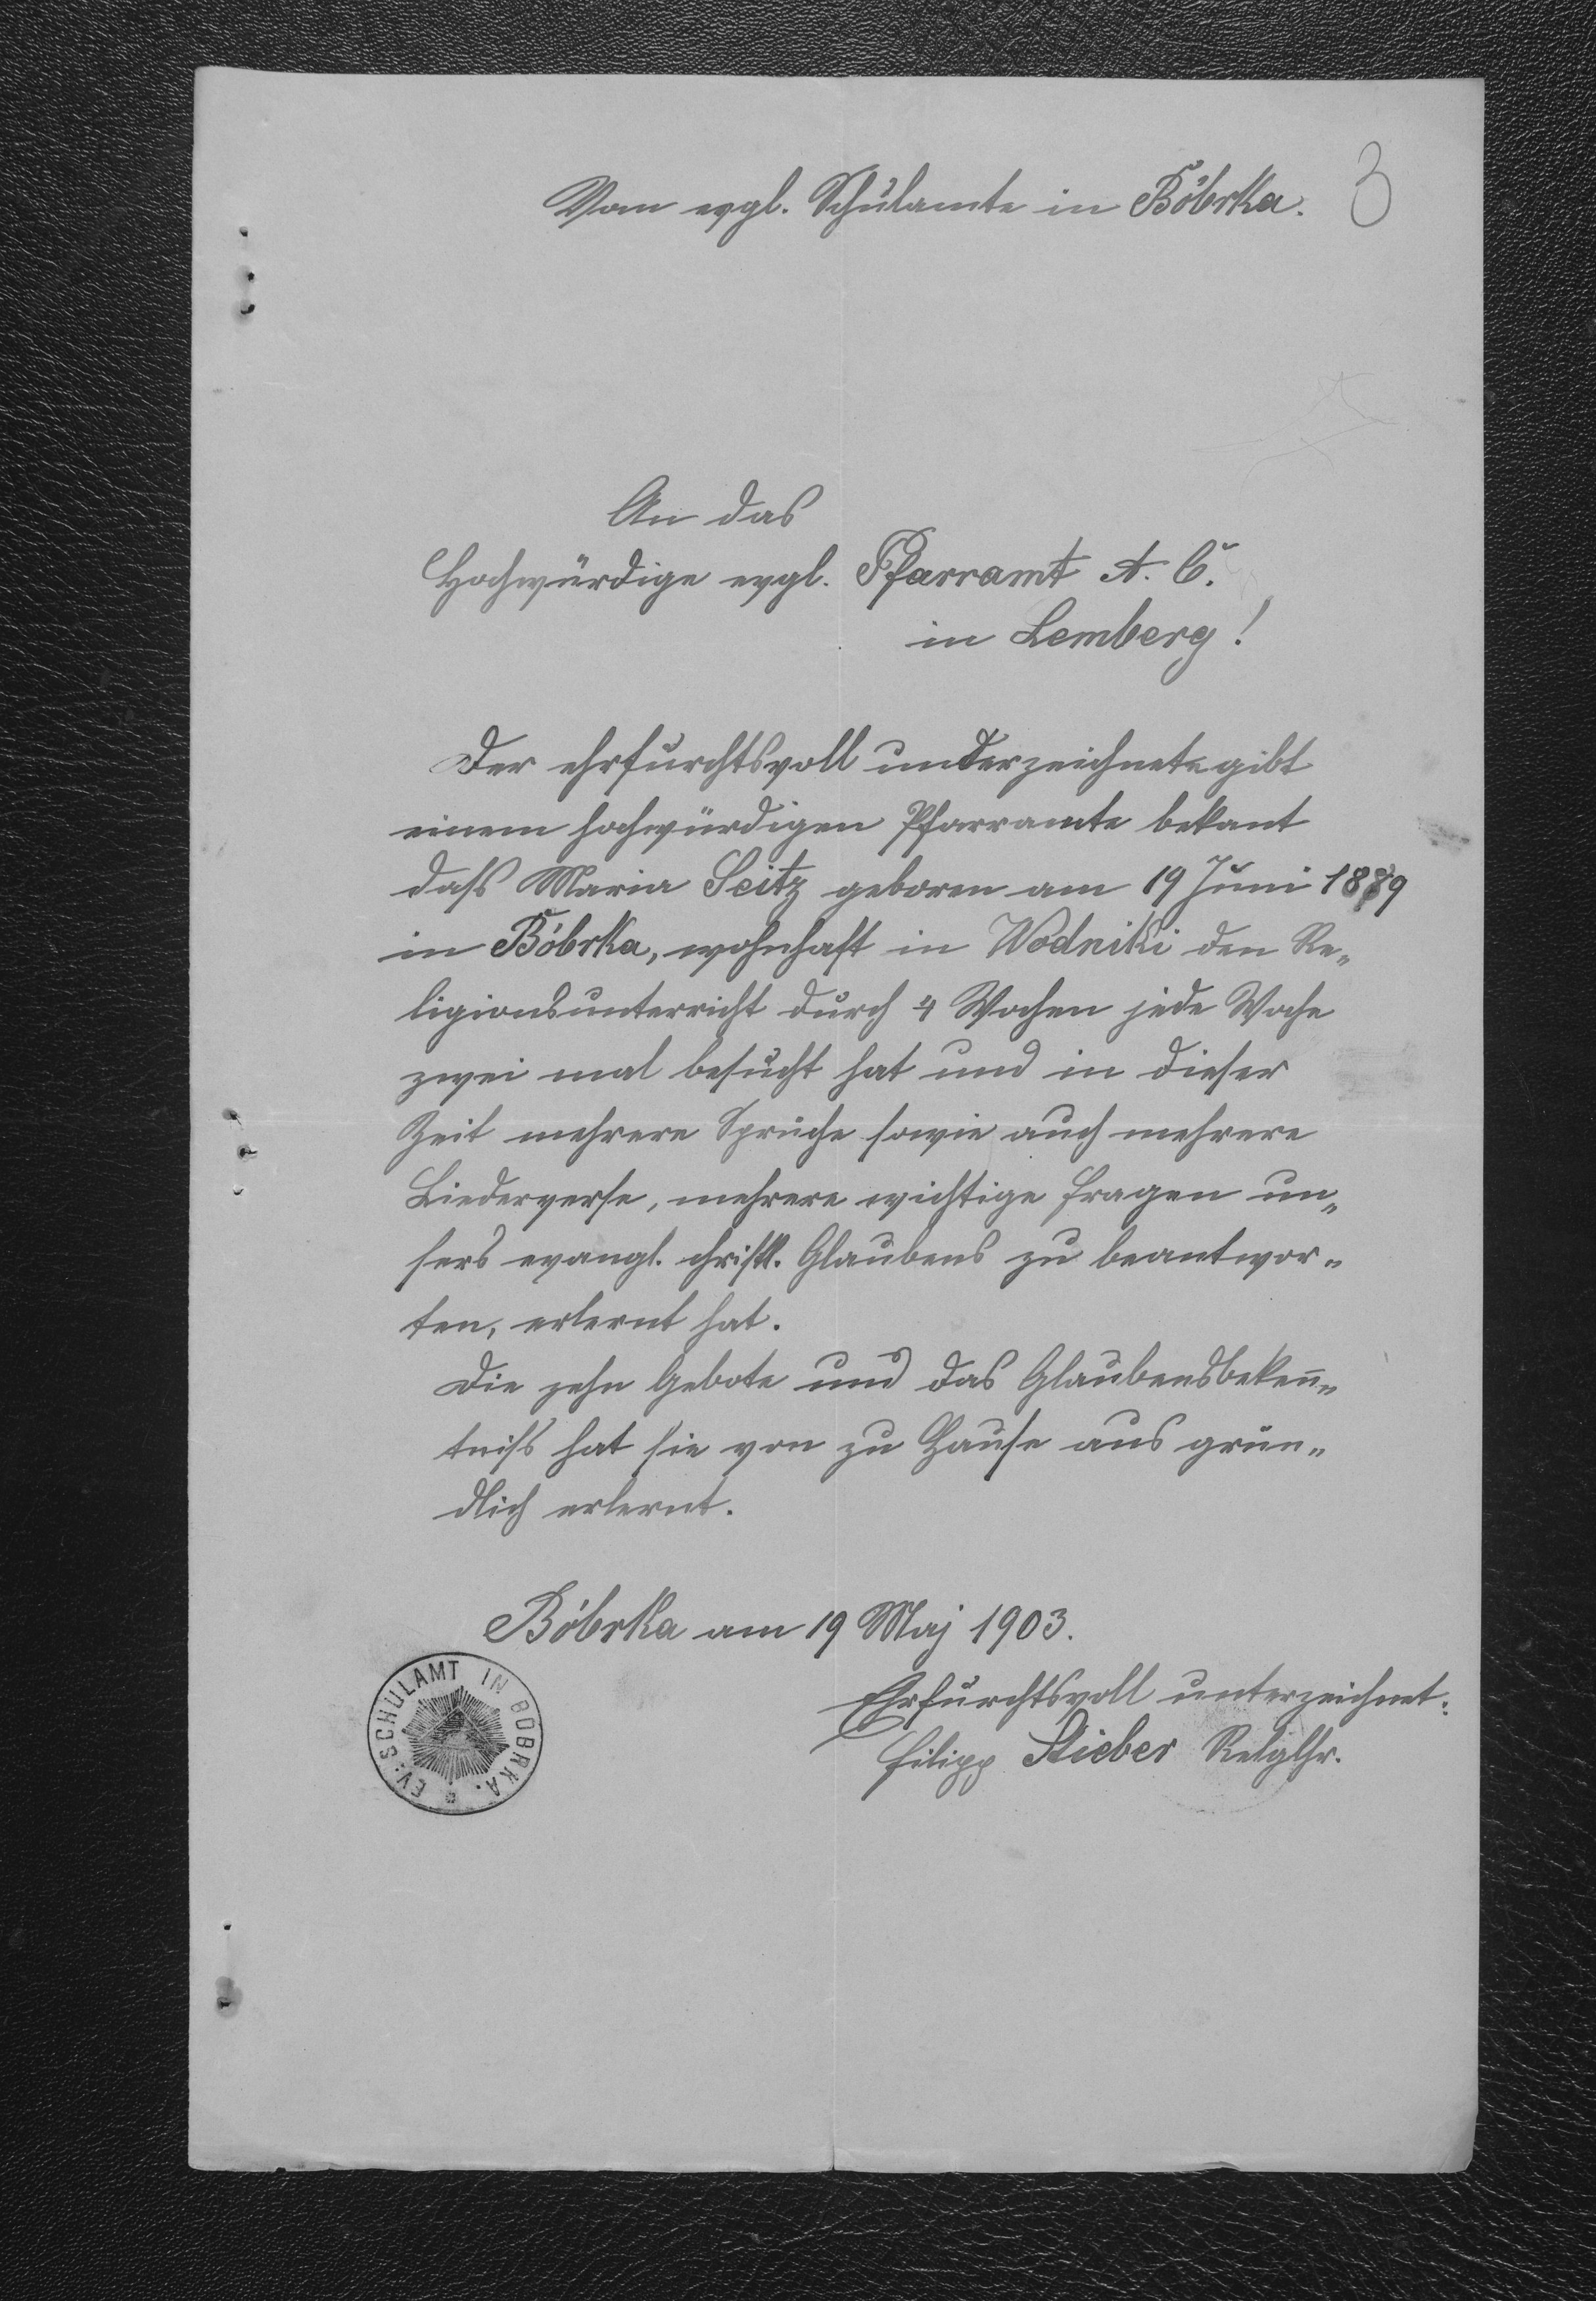 3
Vom evgl. Schulamte in Bóbrka.
An das
Hochwürdige evgl. Pfarramt A. C.
in Lemberg!
Der ehrfurchtsvoll unterzeichnete gibt
einem hochwürdigen Pfarramte bekant
dass Maria Seitz geboren am 19 Juni 1889
in Bóbrka, wohnhaft in Wodniki den Re„
ligionsunterricht durch 4 Wochen jede Woche
zwei mal besucht hat und in dieser
Zeit mehrere Sprüche sowie auch mehrere
Liederverse, mehrere wichtige Fragen un„
sers evangl. christl. Glaubens zu beantwor„
ten, erlernt hat.
Die zehn Gebote und das Glaubensbeken̄„
tniss hat sie von zu Hause aus grün„
dlich erlernt.
Bóbrka am 19 Maj 1903.
Ehrfurchtsvoll unterzeichnet:
Filipp Stieber Relglhr.
EV. SCHULAMT IN BOBRKA.